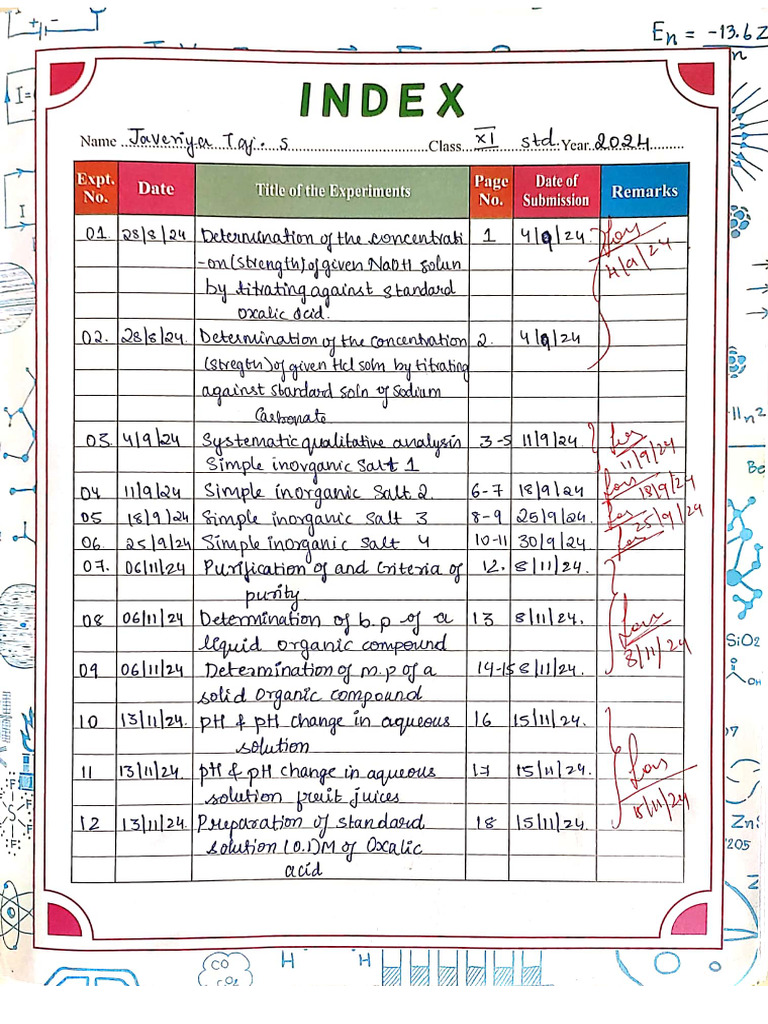 En = -13.6Z
n
+ -
I=
INDEX
Name Javeriya Taj. S Class XI std. Year 2024
Expt. No. Date Title of the Experiments Page No. Date of Submission Remarks
01. 28/8/24 Determination of the concentrati 1 4/9/24
4/9/24
-on (strength) of given NaOH solun
by titrating against standard
oxalic acid.
02. 28/8/24. Determination of the concentration 2. 4/9/24
(stregth) of given Hcl soln by titrating
against standard soln of Sodium
Carbonate
03. 4/9/24 Systematic qualitative analysis 3-5 11/9/24.
Simple inorganic Salt 1
11/9/24
04 11/9/24 Simple inorganic Salt 2. 6-7 18/9/24 18/9/24
05 18/9/24 Simple inorganic Salt 3 8-9 25/9/24 25/9/24
06. 25/9/24 Simple inorganic Salt 4 10-11 30/9/24
07. 06/11/24 Purification of and Criteria of 12. 8/11/24.
purity
08 06/11/24 Determination of b.p of a 13 8/11/24.
liquid organic compound
8/11/24
09 06/11/24 Determination of m.p of a 14-15 8/11/24.
solid Organic compound
10 13/11/24. pH & pH change in aqueous 16 15/11/24.
solution
11 13/11/24. pH & pH change in aqueous 17 15/11/24.
solution fruit juices
15/11/24
12 13/11/24. Preparation of standard 18 15/11/24.
solution (0.1)M of Oxalic
acid
I
Be
SiO2
OH
F
F
S
F
Zn
205
CO
CO2
H H